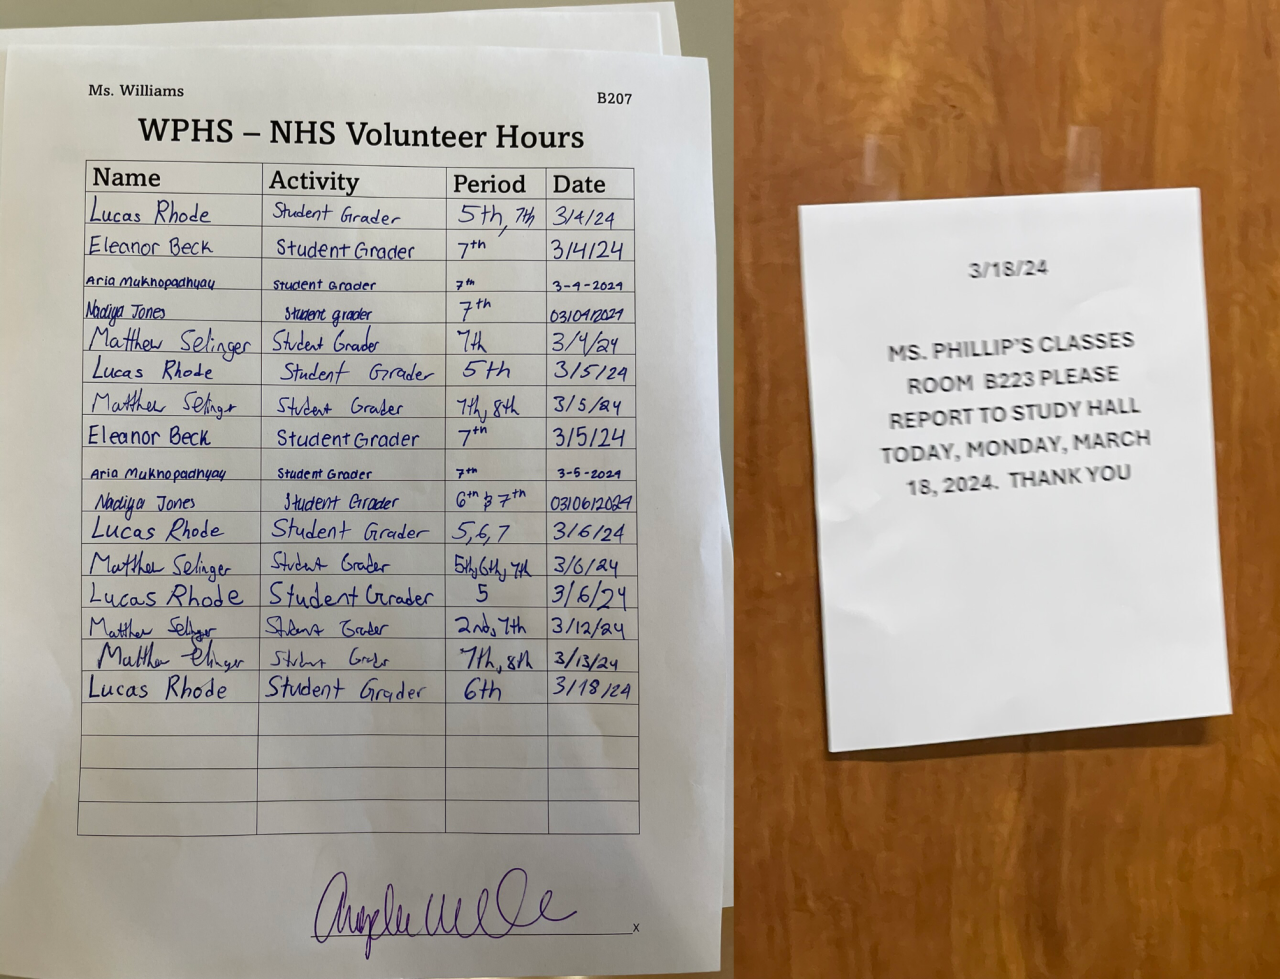 Ms. Williams
B207
WPHS – NHS Volunteer Hours
Name Activity Period Date
Lucas Rhode Student Grader 5th, 7th 3/4/24
Eleanor Beck Student Grader 7th 3/4/24
Aria Muknopadhyay Student Grader 7th 3-4-2024
Nadiya Jones Student grader 7th 03/04/2024
Matthew Selinger Student Grader 7th 3/4/24
Lucas Rhode Student Grader 5th 3/5/24
Matthew Selinger Student Grader 7th, 8th 3/5/24
Eleanor Beck Student Grader 7th 3/5/24
Aria Muknopadhyay Student Grader 7th 3-5-2024
Nadiya Jones Student Grader 6th & 7th 03/06/2024
Lucas Rhode Student Grader 5,6,7 3/6/24
Matthew Selinger Student Grader 5th, 6th, 7th 3/6/24
Lucas Rhode Student Grader 5 3/6/24
Matthew Selinger Student Grader 2nd, 7th 3/12/24
Matthew Selinger Student Grader 7th, 8th 3/13/24
Lucas Rhode Student Grader 6th 3/18/24
x
3/18/24
MS. PHILLIP'S CLASSES
ROOM B223 PLEASE
REPORT TO STUDY HALL
TODAY, MONDAY, MARCH
18, 2024. THANK YOU